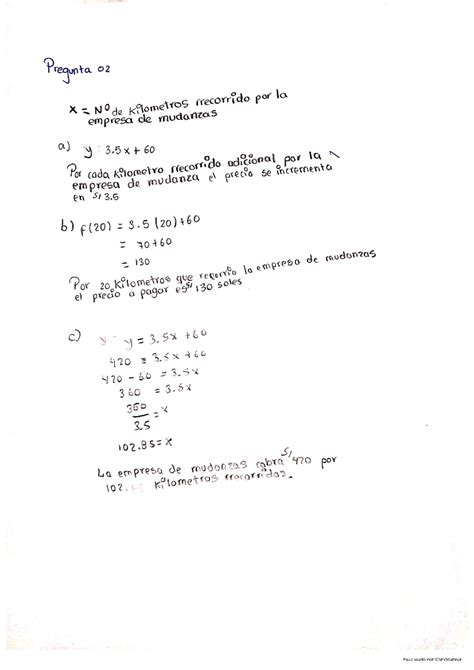 Pregunta 02
x = Nº de kilometros rrecorrido por la
empresa de mudanzas
a) y = 3.5x + 60
Por cada kilometro rrecorrido adicional por la
empresa de mudanza el precio se incrementa
en S/ 3.5
b) f(20) = 3.5 (20) + 60
= 70 + 60
= 130
Por 20 kilometros que recorrio la empresa de mudanzas
el precio a pagar es S/ 130 soles
c) y = 3.5x + 60
420 = 3.5x + 60
420 - 60 = 3.5x
360 = 3.5x
360/3.5 = x
102.85 = x
La empresa de mudanzas cobra S/ 420 por
102. kilometros rrecorridos.